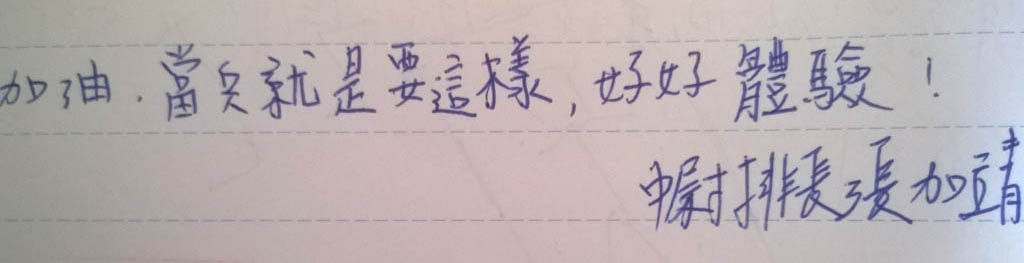 加油.當兵就是要這樣,好好體驗!
中尉排長張加靖